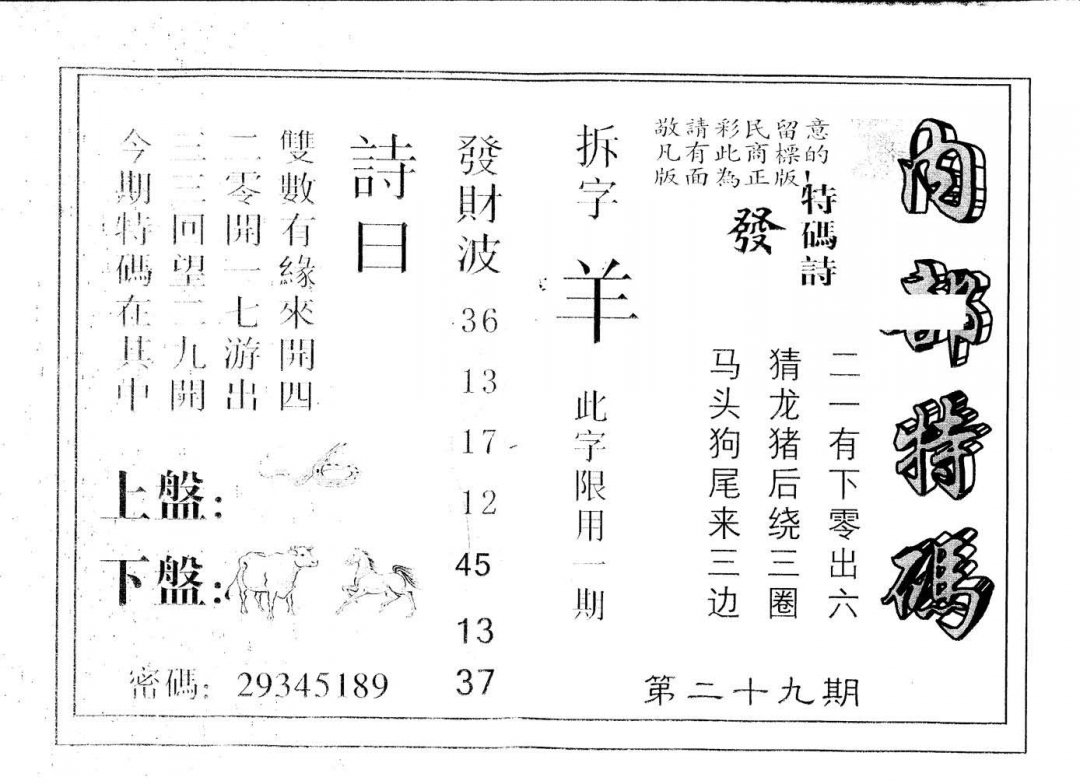 內部特碼
意的
留標版
民商正
彩此為
請有面
敬凡版
特碼詩
發
二一有下零出六
猜龙猪后绕三圈
马头狗尾来三边
第二十九期
拆字
羊
此字限用一期
發財波
36
13
17
12
45
13
37
詩曰
雙數有緣來開四
二零開一七游出
三三回望二九開
今期特碼在其中
上盤:
下盤:
密碼: 29345189